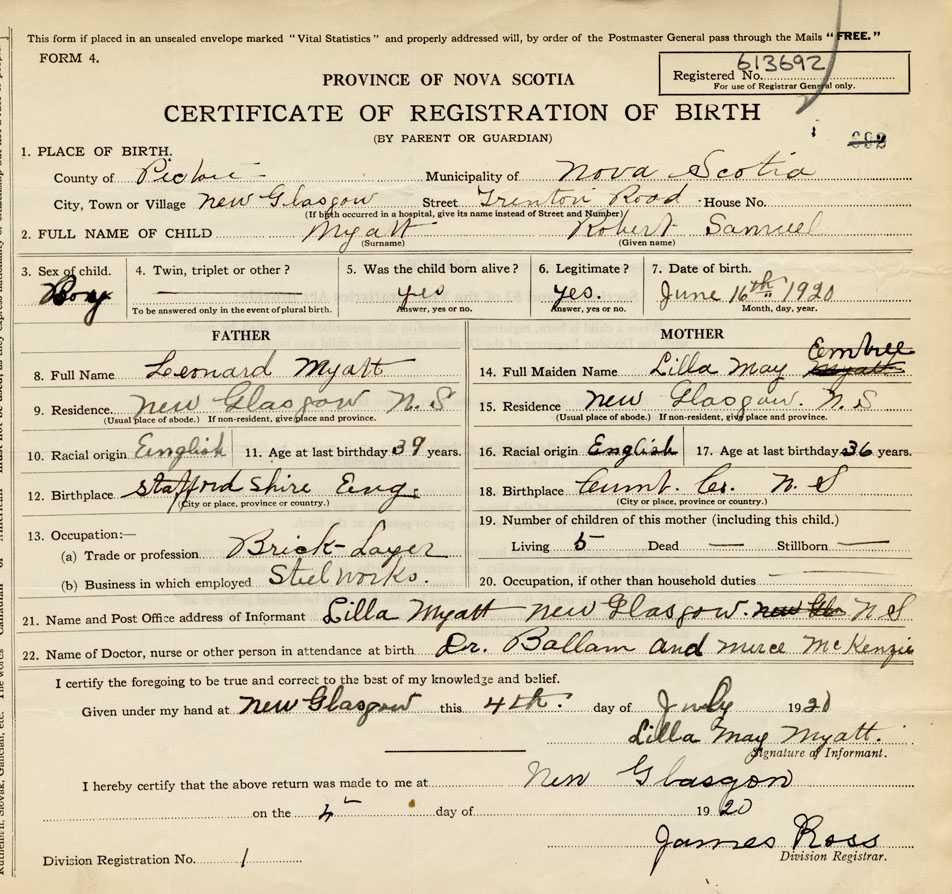 This form if placed in an unsealed envelope marked "Vital Statistics" and properly addressed will, by order of the Postmaster General pass through the Mails "FREE."
FORM 4.
613692
Registered No.
For use of Registrar General only.
PROVINCE OF NOVA SCOTIA
CERTIFICATE OF REGISTRATION OF BIRTH
(BY PARENT OR GUARDIAN)
1. PLACE OF BIRTH.
County of Pictou Municipality of Nova Scotia
City, Town or Village New Glasgow Street Trenton Road House No.
(If birth occurred in a hospital, give its name instead of Street and Number)
2. FULL NAME OF CHILD Myatt Robert Samuel
(Surname) (Given name)
3. Sex of child. 4. Twin, triplet or other? 5. Was the child born alive? 6. Legitimate? 7. Date of birth.
Boy yes yes. June 16th 1920
To be answered only in the event of plural birth. Answer, yes or no. Answer, yes or no. Month, day, year.
FATHER
8. Full Name Leonard Myatt
9. Residence. New Glasgow N.S
(Usual place of abode.) If non-resident, give place and province.
10. Racial origin English 11. Age at last birthday 39 years.
12. Birthplace Staffordshire Eng.
(City or place, province or country.)
13. Occupation:—
(a) Trade or profession Brick-Layer
(b) Business in which employed Steel Works.
MOTHER
Embree
14. Full Maiden Name Lilla May Myatt
15. Residence New Glasgow. N.S
(Usual place of abode.) If non-resident, give place and province.
16. Racial origin English 17. Age at last birthday 36 years.
18. Birthplace Cumb. Co. N.S
(City or place, province or country.)
19. Number of children of this mother (including this child.)
Living 5 Dead — Stillborn —
20. Occupation, if other than household duties
21. Name and Post Office address of Informant Lilla Myatt New Glasgow. New Gla N S
22. Name of Doctor, nurse or other person in attendance at birth Dr. Ballam and nurce McKenzie
I certify the foregoing to be true and correct to the best of my knowledge and belief.
Given under my hand at New Glasgow this 4th. day of July 1920
Lilla May Myatt.
Signature of Informant.
I hereby certify that the above return was made to me at New Glasgow
on the day of 1920
James Ross
Division Registrar.
Division Registration No. 1